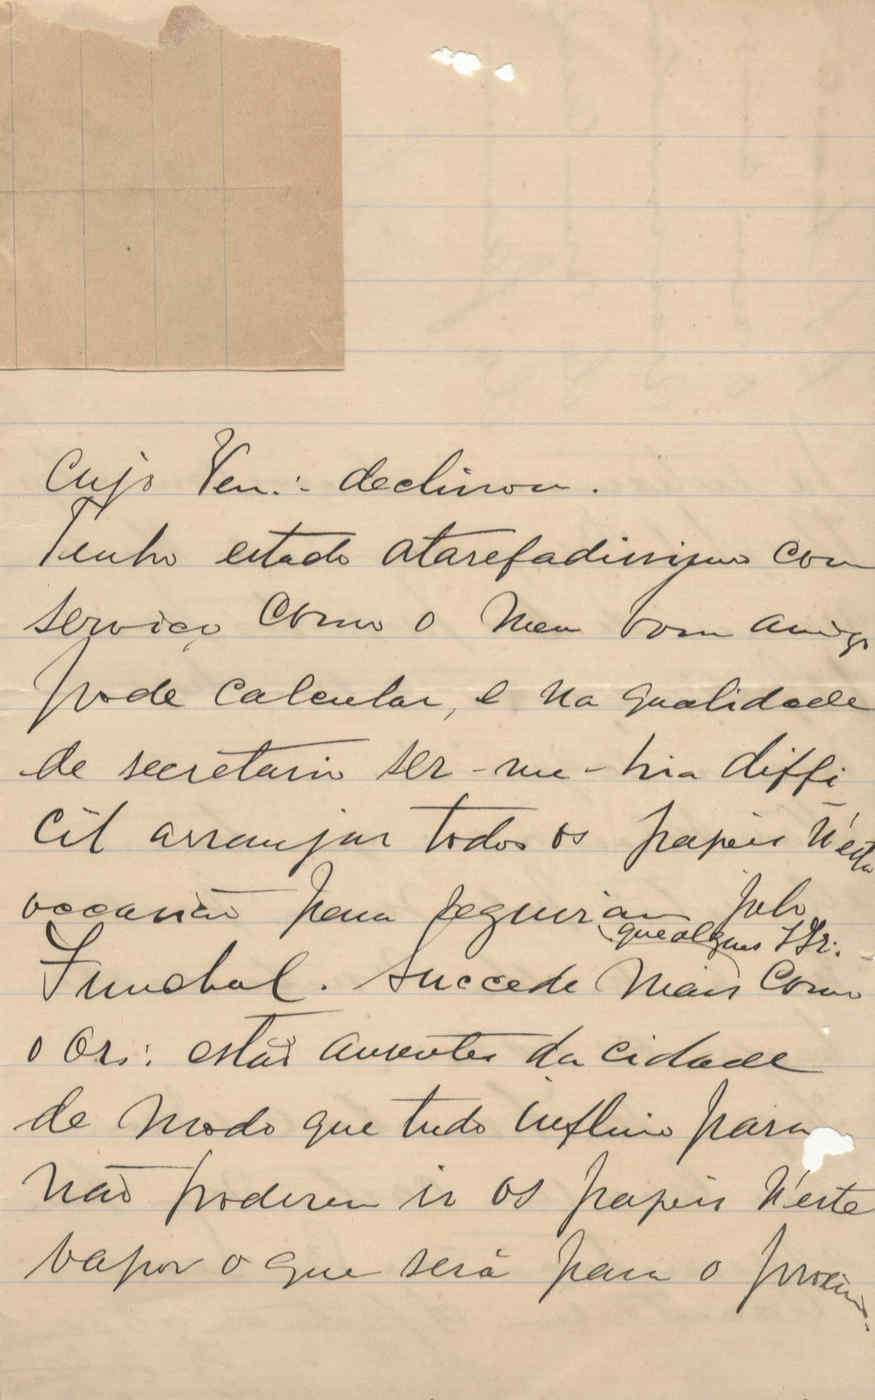 cujo Ven.∴ declinou.
Tenho estado atarefadissimo com
serviço como o meu bom amigo
pode calcular, e na qualidade
de secretario ser-me-hia diffi
cil arranjar todos os papeis n'esta
occasião para seguirem pelo
que alguns IIr∴
Funchal. Succede mais como
o Or∴ estão ausentes da cidade
de modo que tudo influio para
não poderem ir os papeis n'este
vapor o que será para o proximo.